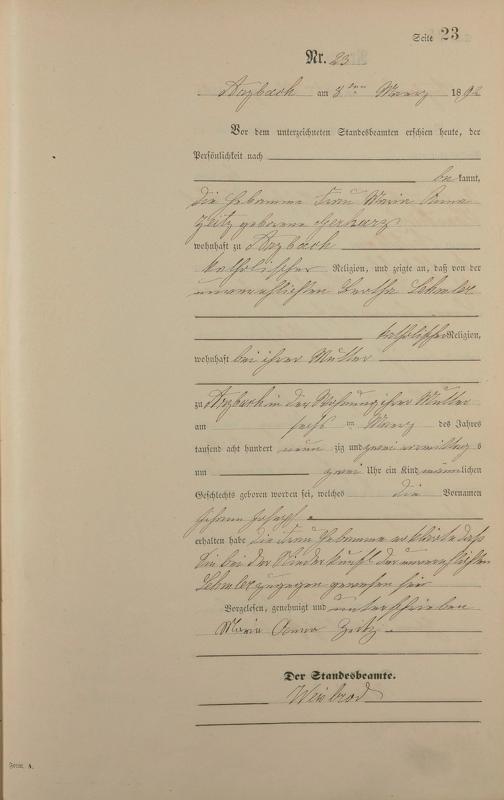 Seite 23
Nr. 23
Arzbach am ten Maerz 1892
Vor dem unterzeichneten Standesbeamten erschien heute, der
Persönlichkeit nach
bekannt,
die Hebamme Frau Maria Anna
Zeitz geborene Gerharz
wohnhaft zu Arzbach
katholischer Religion, und zeigte an, daß von der
unverehlichten Bertha
katholischer Religion,
wohnhaft bei ihrer Mutter
zu Arzbach in der Wohnung ihrer Mutter
am sechs im Maerz des Jahres
tausend acht hundert neun zig und zwei vormittags
um zwei Uhr ein Kind männlichen
Geschlechts geboren worden sei, welches die Vornamen
Johann Joseph
erhalten habe die Frau Hebamme erklärte daß
sie bei der Niederkunft der unverehlichten
zugegen gewesen sei
Vorgelesen, genehmigt und unterschrieben
Maria Anna Zeitz
Der Standesbeamte.
Weinbrod
Form. A.